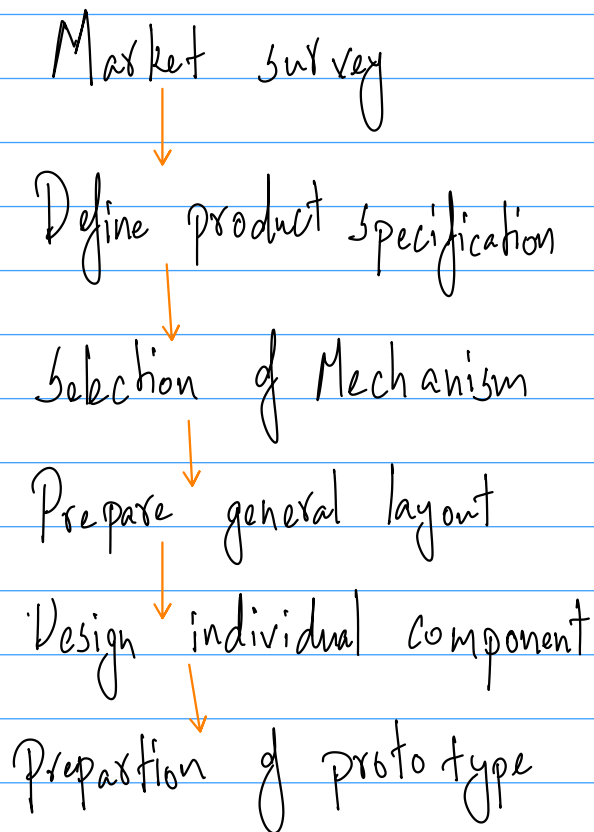 Market survey
Define product specification
Selection of Mechanism
Prepare general layout
Design individual component
Prepartion of prototype